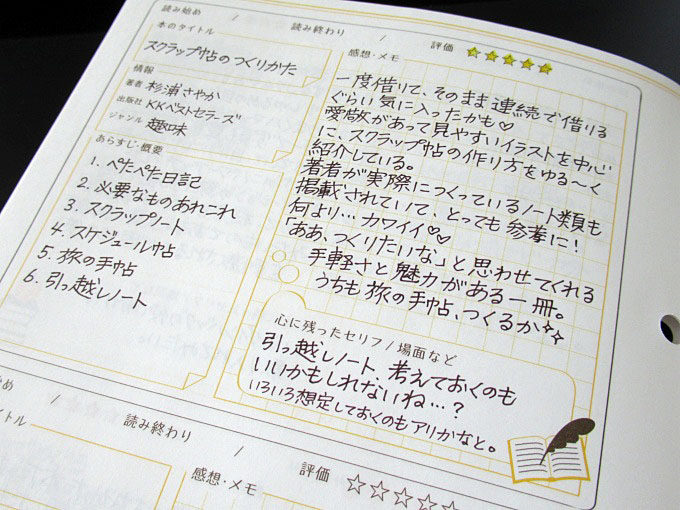 読み始め / 読み終わり / 評価 ★★★★★
本のタイトル
スクラップ帖のつくりかた
情報
著者 杉浦さやか
出版社 KKベストセラーズ
ジャンル 趣味
あらすじ・概要
1. ぺたぺた日記
2. 必要なものあれこれ
3. スクラップノート
4. スケジュール帖
5. 旅の手帖
6. 引っ越しノート
感想・メモ
一度借りて、そのまま連続で借りる
ぐらい気に入ったかも♡
愛敬があって見やすいイラストを中心
に、スクラップ帖の作り方をゆる〜く
紹介している。
著者が実際につくっているノート類も
掲載されていて、とっても参考に!
何より…カワイイ♡♡
「ああ、つくりたいな」と思わせてくれる
手軽さと魅力がある一冊。
うちも旅の手帖、つくるか
心に残ったセリフ / 場面など
引っ越しノート、考えておくのも
いいかもしれないね…?
いろいろ想定しておくのもアリかなと。
め / 読み終わり / 評価 ☆☆☆☆☆
イトル
感想・メモ